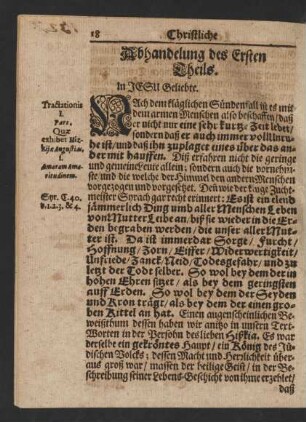 18 Christliche
Abhandelung des Ersten
Theils.
In JESU Geliebte.
Tractationis
I.
Pars.
Quæ
exhibet Hiskiæ
Angustias,
I.
Amaram amaritudinem.
Syr. C. 40.
v. 1. 2. 3. & 4.
NAch dem kläglichen Sündenfall ist es mit
uns armen Menschen also beschaffen / daß
er nicht nur eine kurtze Zeit lebet /
sondern daß er auch immer voll Unruhe
ist / und daß ihn zuplaget eines über das ander
mit hauffen. Diß erfahren nicht die geringe
und gemeine Leute allein; sondern auch die vornehmste
und die welche der Himmel den andern Menschen
vorgezogen und vorgesetzet. Deñ wie der kluge Zuchtmeister
Sprach gar recht erinnert: Es ist ein elend
jämmerlich Ding umb aller Menschen Leben
von Mutter Leibe an, biß sie wieder in die Erden
begraben werden / die unser aller Mutter
ist. Da ist immerdar Sorge / Furcht /
Hoffnung / Zorn / Eiffer / Widerwertigkeit /
Unfriede / Zanck / Neid / Todesgefahr / und zu
letzt der Todt selber. So wol bey dem der in
hohen Ehren sitzet / als bey dem geringsten
auff Erden. So wol bey dem der Seyden
und Kron trägt / als bey dem der einen groben
Kittel an hat. Einen augenscheinlichen Beweisthum
dessen haben wir anitzo in unsern Text-
Worten in der Persohn des lieben Hißkia. Es war
derselbe ein gekröntes Haupt / ein König des Jüdischen
Volcks; dessen Macht und Herrlichkeit überaus
groß war / massen der heilige Geist / in der Beschreibung
seiner Lebens-Geschicht von ihme erzehlet /
daß